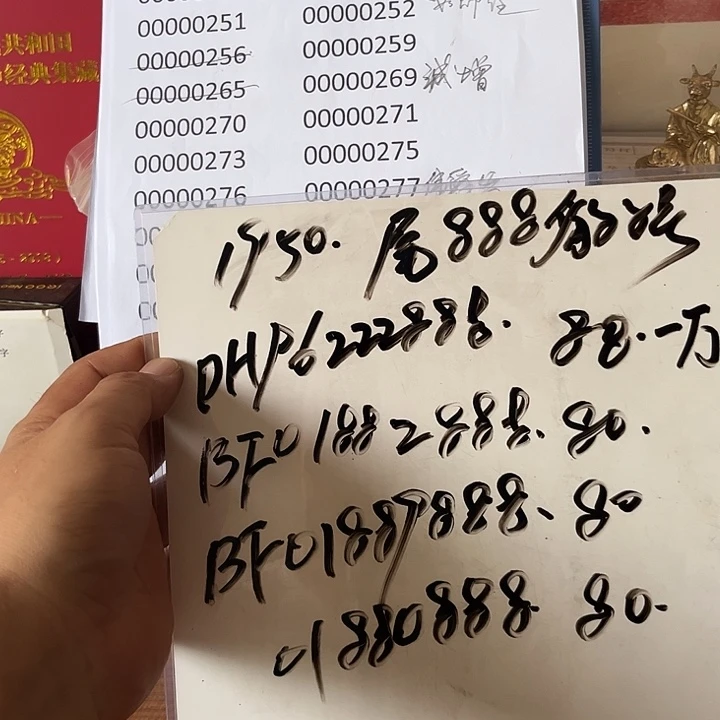 共和国
经典集藏
INA
00000251 00000252
00000256 00000259
00000265 00000269 诚增
00000270 00000271
00000273 00000275
00000276 00000277
1950. 尾888
DHP6222888. 88.一万
BF01882888. 80.
BF01887888. 80
01880888 80.